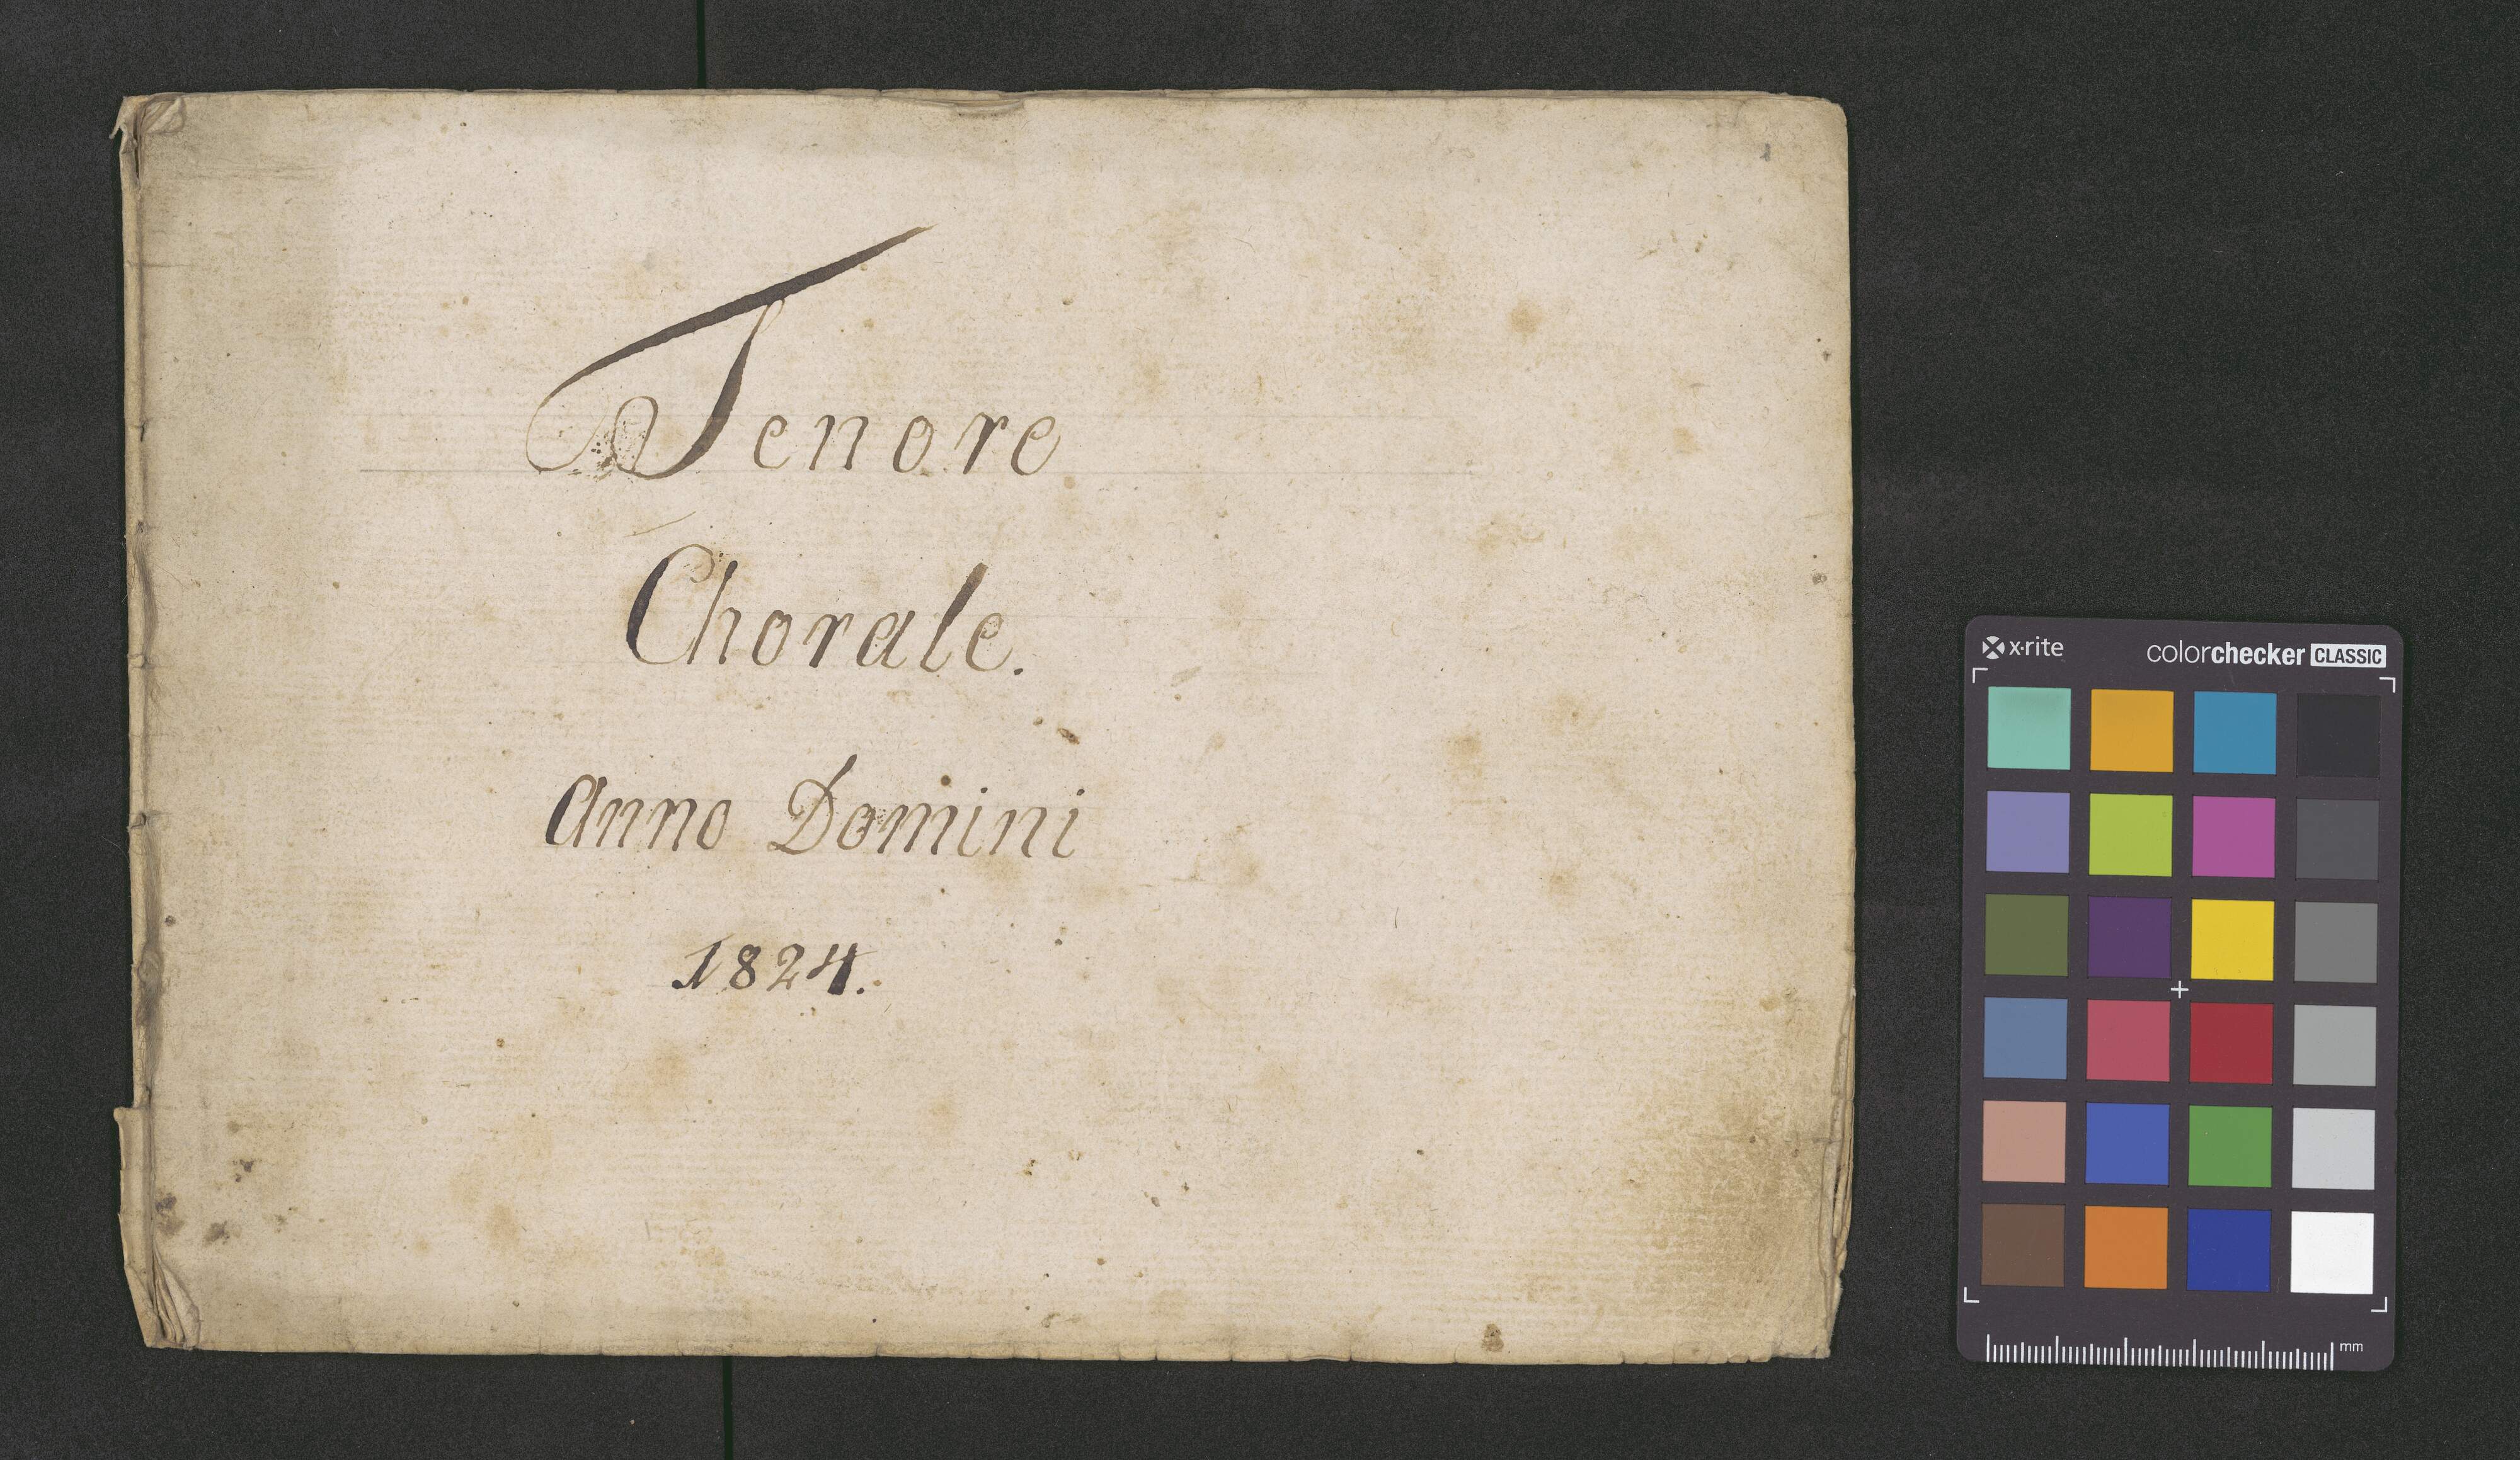 Tenore
Chorale.
Anno Domini
1824.
x·rite
colorchecker CLASSIC
mm